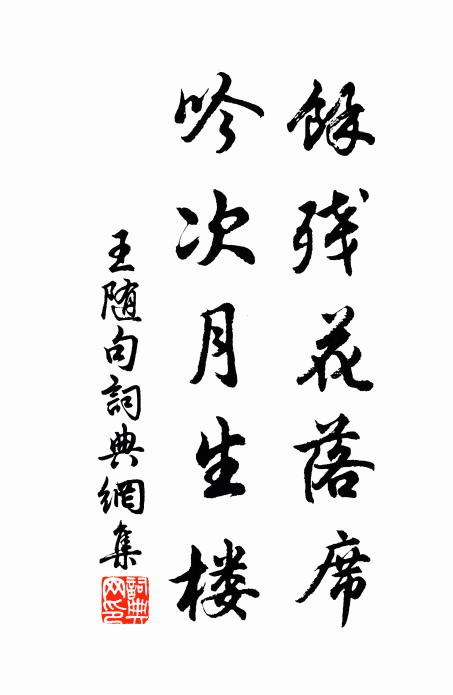 餘残花落席
吟次月生楼
王随句詞典網集
詞典网印